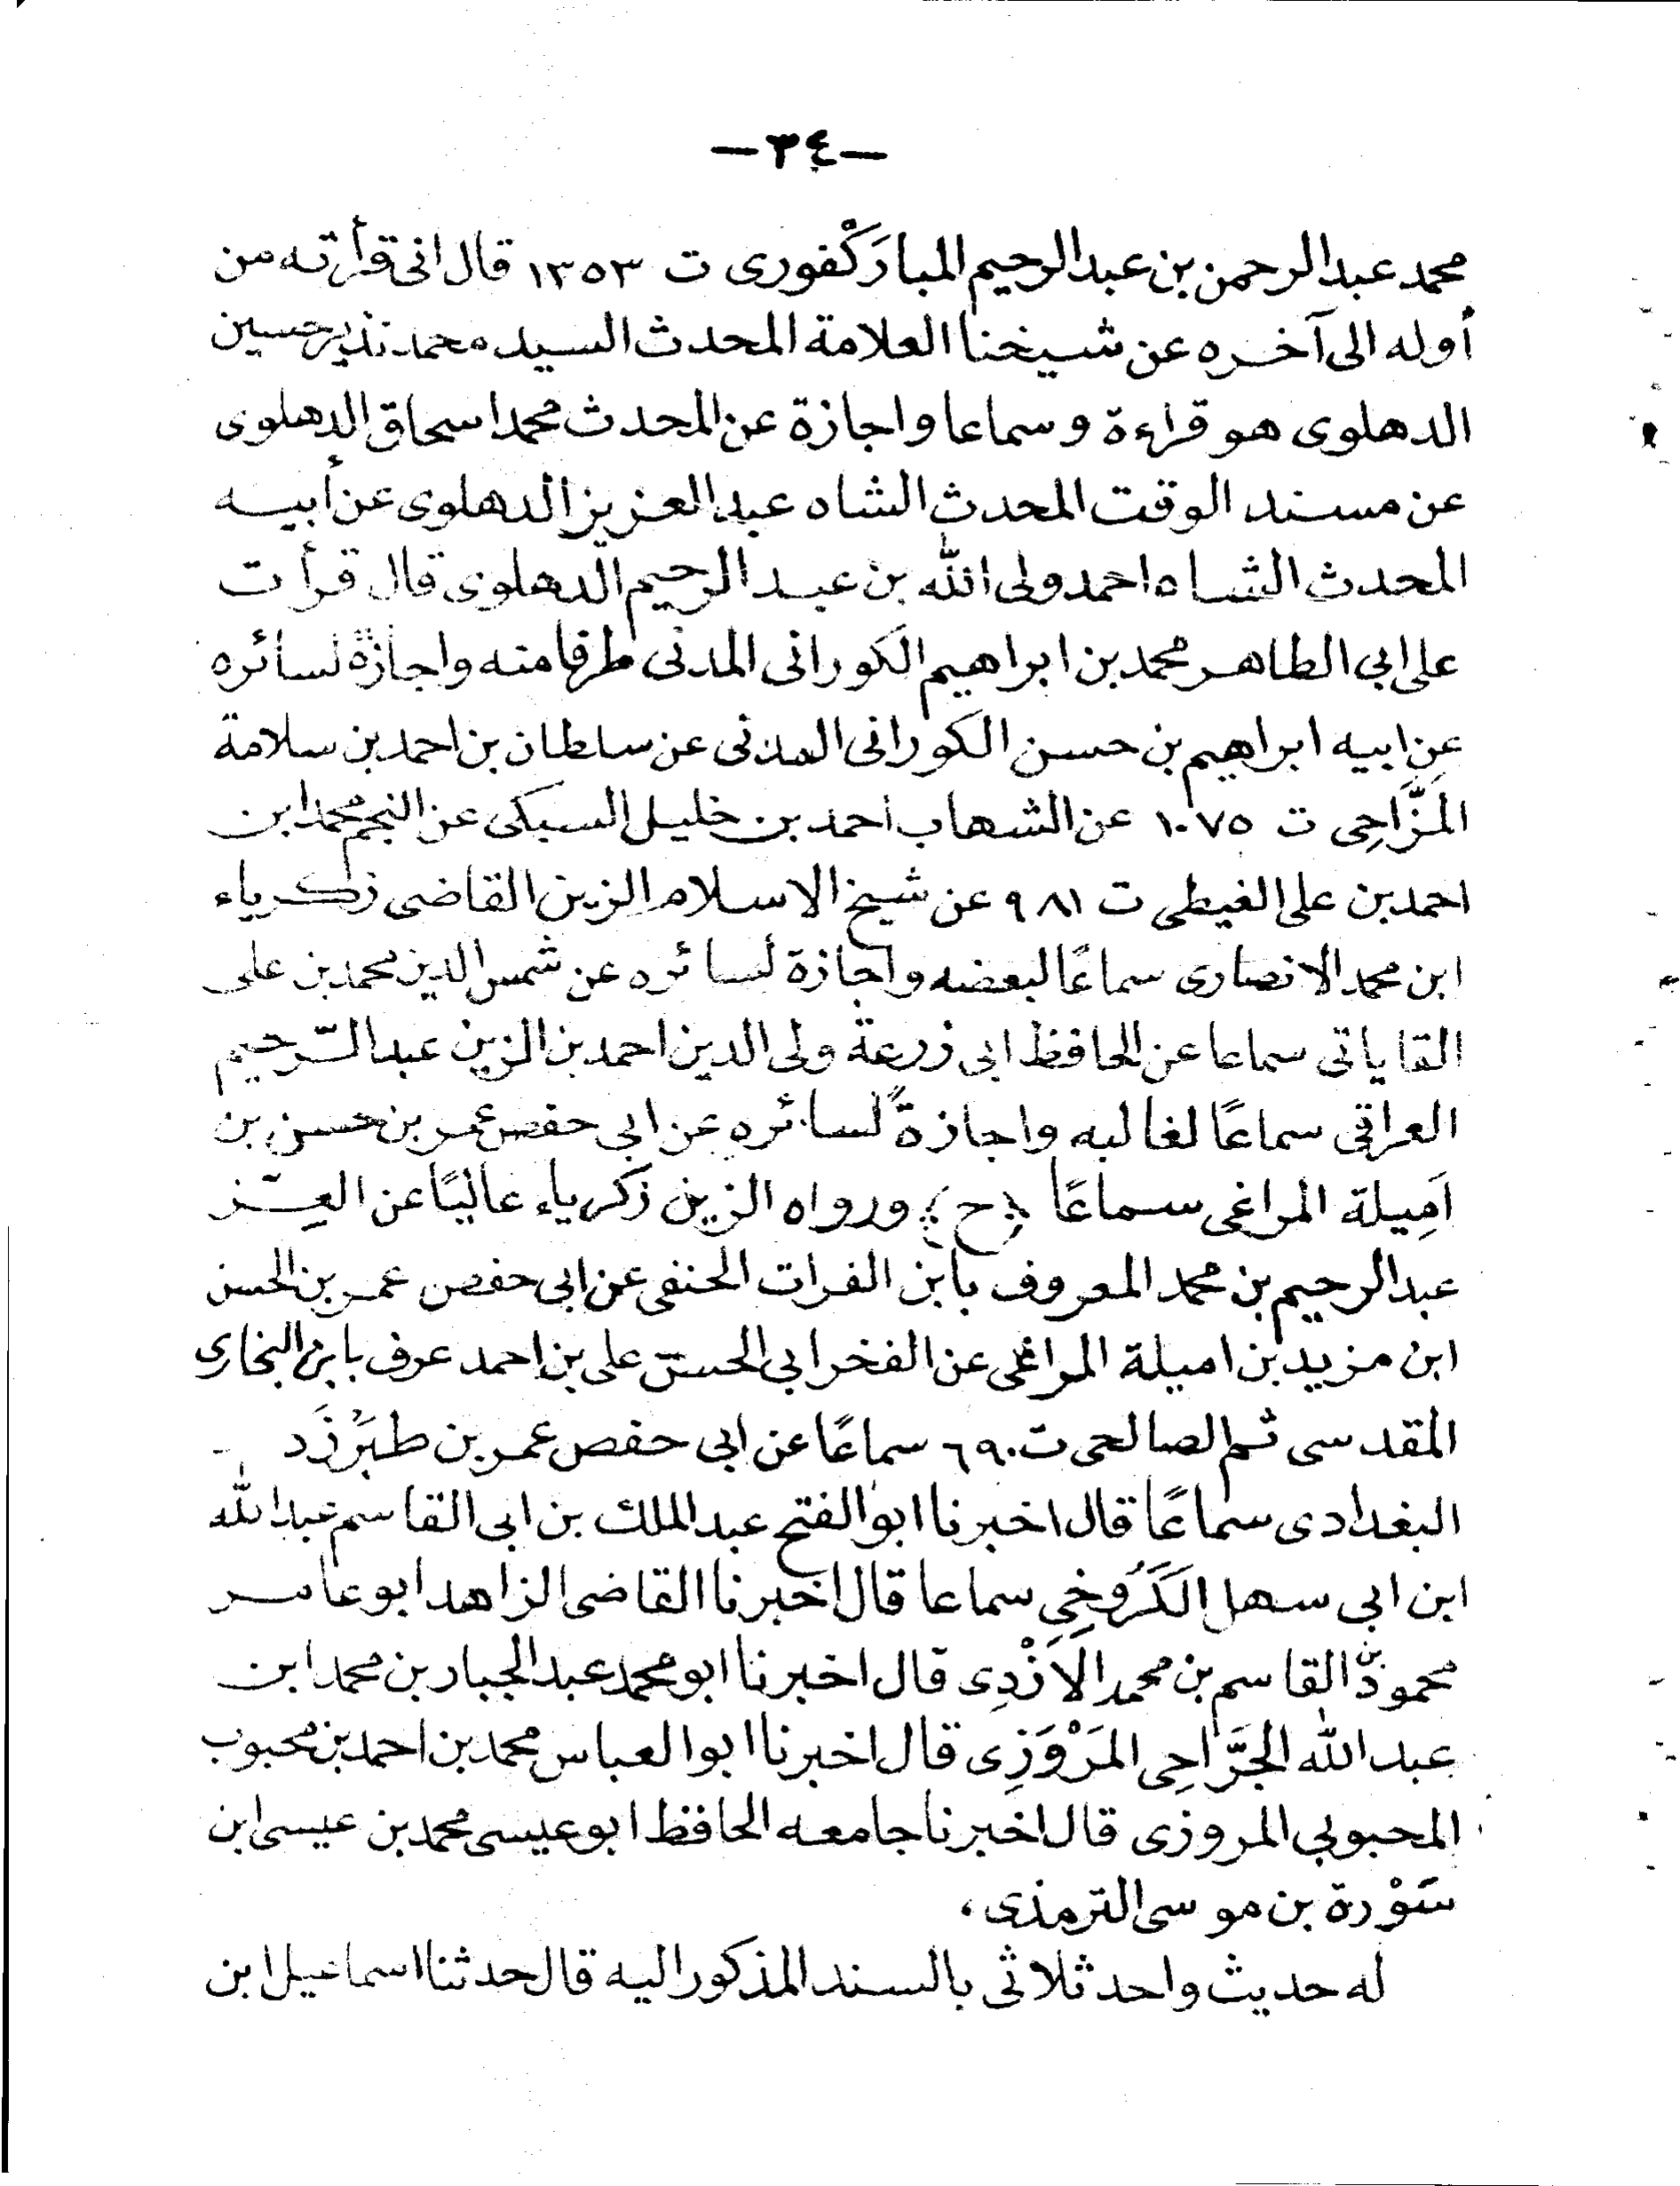 —٣٤—
محمد عبد الرحمن بن عبد الرحيم المبارَكْفورى ت ١٣٥٣ قال انى قرأته من
أوله الى آخره عن شيخنا العلامة المحدث السيد محمد نذير حسين
الدهلوى هو قراءة وسماعا واجازة عن المحدث محمد اسحاق الدهلوى
عن مسند الوقت المحدث الشاه عبد العزيز الدهلوى عن أبيه
المحدث الشاه احمد ولى الله بن عبد الرحيم الدهلوى قال قرأت
على ابى الطاهر محمد بن ابراهيم الكورانى المدنى طرفا منه واجازةً لسائره
عن ابيه ابراهيم بن حسن الكورانى المدنى عن سلطان بن احمد بن سلامة
المَزَّاحِى ت ١٠٧٥ عن الشهاب احمد بن خليل السبكى عن النجم محمد ابن
احمد بن على الغيطى ت ٩٨١ عن شيخ الاسلام الزين القاضى زكرياء
ابن محمد الانصارى سماعًا لبعضه واجازة لسائره عن شمس الدين محمد بن على
القاياتى سماعا عن الحافظ ابى زرعة ولى الدين احمد بن الزين عبد الرّحيم
العراقى سماعًا لغالبه واجازةً لسائره عن ابى حفص عمر بن حسن بن
اَمِيلة المراغى سماعًا (ح) ورواه الزين زكرياء عاليًا عن العِزّ
عبد الرحيم بن محمد المعروف بابن الفرات الحنفى عن ابى حفص عمر بن الحسن
ابن مزيد بن اميلة المراغى عن الفخر ابى الحسن على بن احمد عرف بابن البخارى
المقدسى ثم الصالحى ت ٦٩٠ سماعًا عن ابى حفص عمر بن طبَرْزَد
البغدادى سماعًا قال اخبرنا ابو الفتح عبد الملك بن ابى القاسم عبد الله
ابن ابى سهل الكَرُوخِى سماعا قال اخبرنا القاضى الزاهد ابو عامر
محمود بن القاسم بن محمد الاَزْدِى قال اخبرنا ابو محمد عبد الجبار بن محمد ابن
عبد الله الجَرَّاحِى المَرْوَزِى قال اخبرنا ابو العباس محمد بن احمد بن محبوب
المحبوبى المروزى قال اخبرنا جامعه الحافظ ابو عيسى محمد بن عيسى ابن
سَوْرة بن موسى الترمذى،
له حديث واحد ثلاثى بالسند المذكور اليه قال حدثنا اسماعيل ابن